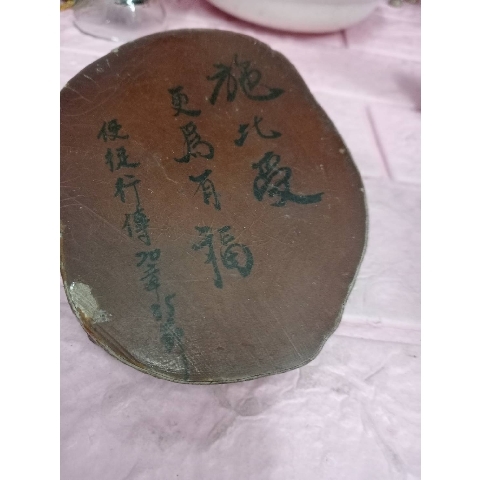 施比受
更爲有福
使徒行傳20章35